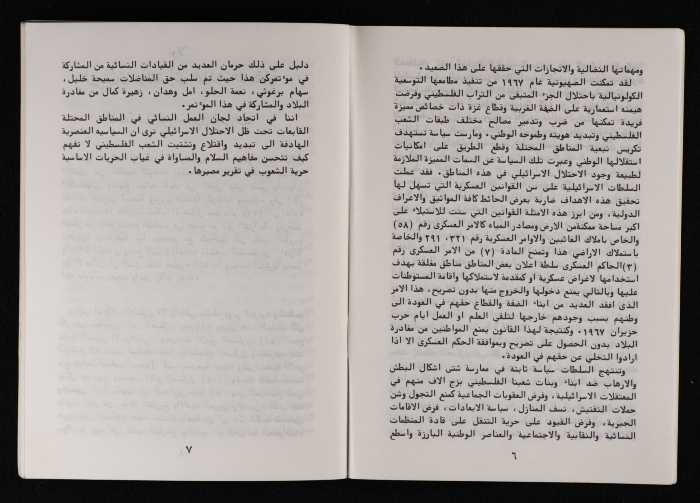 ومهماتها النضالية والانجازات التي حققها على هذا الصعيد .
لقد تمكنت الصهيونية عام ١٩٦٧ من تنفيذ مطامعها التوسعية
الكولونيالية باحتلال الجزء المتبقى من التراب الفلسطيني وفرضت
هيمنه استعمارية على الضفة الغربية وقطاع غزة ذات خصائص مميزة
فريدة تمكنها من ضرب وتدمير مصالح مختلف طبقات الشعب
الفلسطيني وتبديد هويته وطموحه الوطني . ومارست سياسة تستهدف
تكريس تبعية المناطق المحتلة وقطع الطريق على امكانيات
استقلالها الوطني وعبرت تلك السياسة عن السمات المميزة الملازمة
لطبيعة وجود الاحتلال الاسرائيلي في هذه المناطق . فقد عملت
السلطات الاسرائيلية على سن القوانين العسكرية التي تسهل لها
تحقيق هذه الاهداف ضاربة بعرض الحائط كافة المواثيق والاعراف
الدولية، ومن ابرز هذه الامثلة القوانين التي سنت للاستيلاء على
اكبر مساحة ممكنة من الارض ومصادر المياه كالامر العسكرى رقم (٥٨)
والخاص باملاك الغائبين والاوامر العسكرية رقم ٣٢١، ٢٩١ والخاصة
باستملاك الاراضي هذا وتمنح المادة (٧) من الامر العسكرى رقم
(٣) الحاكم العسكرى سلطة اعلان بعض المناطق مناطق مغلقة بهدف
استخدامها لاغراض عسكرية او كمقدمة لاستملاكها واقامة المستوطنات
عليها وبالتالي يمنع دخولها والخروج منها بدون تصريح، هذا الامر
الذى افقد العديد من ابناء الضفة والقطاع حقهم في العودة الى
وطنهم بسبب وجودهم خارجها لتلقي العلم او العمل ايام حرب
حزيران ١٩٦٧. وكنتيجة لهذا القانون يمنع المواطنين من مغادرة
البلاد بدون الحصول على تصريح وبموافقة الحكم العسكرى الا اذا
ارادوا التخلي عن حقهم في العودة .
وتنتهج السلطات سياسة ثابتة في ممارسة شتى اشكال البطش
والارهاب ضد ابناء وبنات شعبنا الفلسطيني بزج الاف منهم في
المعتقلات الاسرائيلية، وفرض العقوبات الجماعية كمنع التجول وشن
حملات التفتيش، نسف المنازل ، سياسة الابعادات ، فرض الاقامات
الجبرية، وفرض القيود على حرية التنقل على قادة المنظمات
النسائية والنقابية والاجتماعية والعناصر الوطنية البارزة واسطع
٦
دليل على ذلك حرمان العديد من القيادات النسائية من المشاركة
في موءتمركن هذا حيث تم سلب حق المناضلات سميحة خليل ،
سهام برغوثي، نعمة الحلو، امل وهدان ، زهيرة كمال من مغادرة
البلاد والمشاركة في هذا الموءتمر .
اننا في اتحاد لجان العمل النسائي في المناطق المحتلة
القابعات تحت ظل الاحتلال الاسرائيلي نرى ان السياسيه العنصرية
الهادفة الى تبديد واقتلاع وتشتيت الشعب الفلسطيني لا تفهم
كيف تتحسن مفاهيم السلام والمساواة في غياب الحريات الاساسية
حرية الشعوب في تقرير مصيرها .
٧